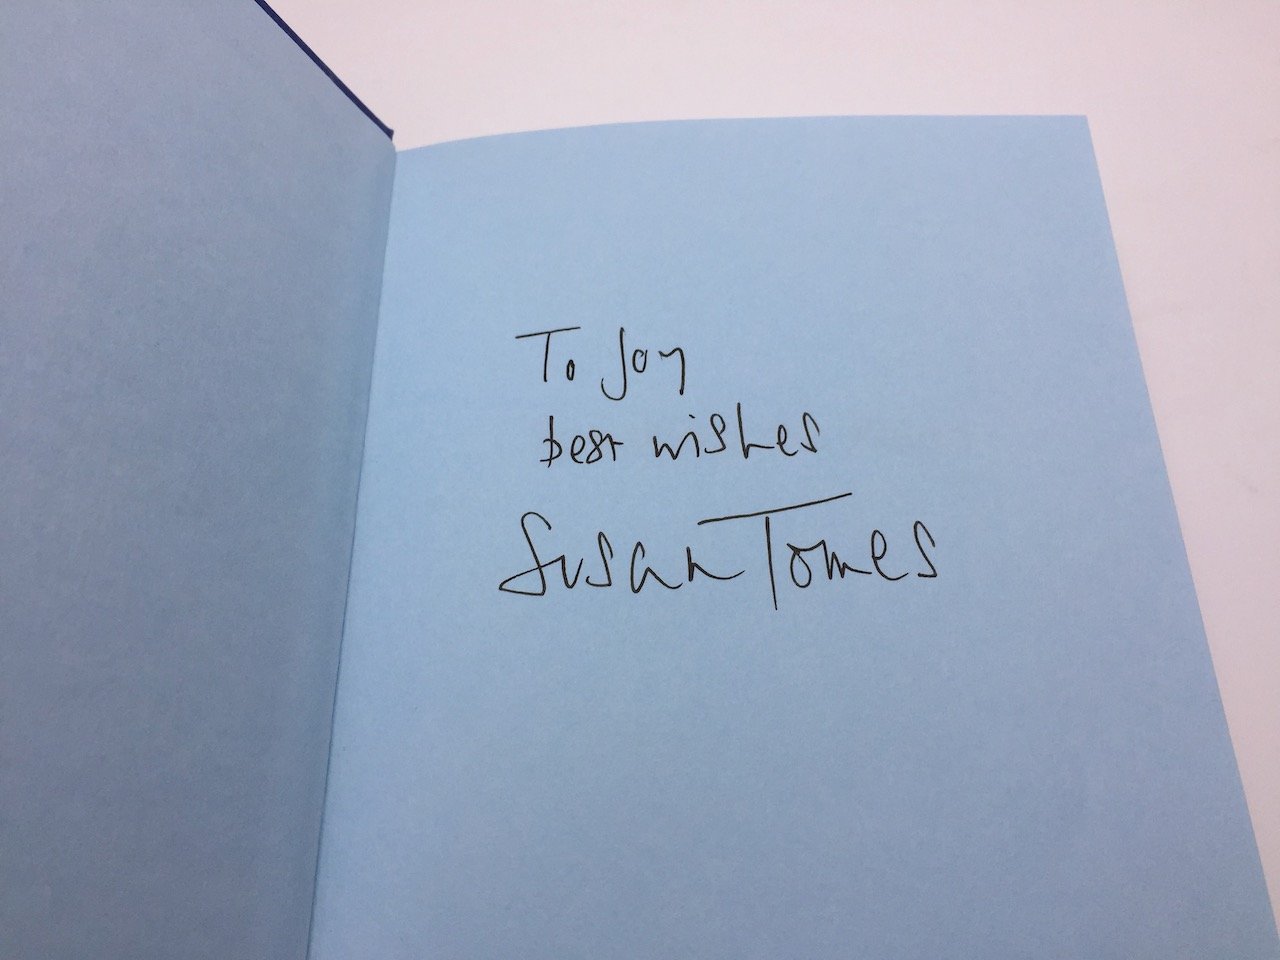 To Joy
best wishes
Susan Tomes